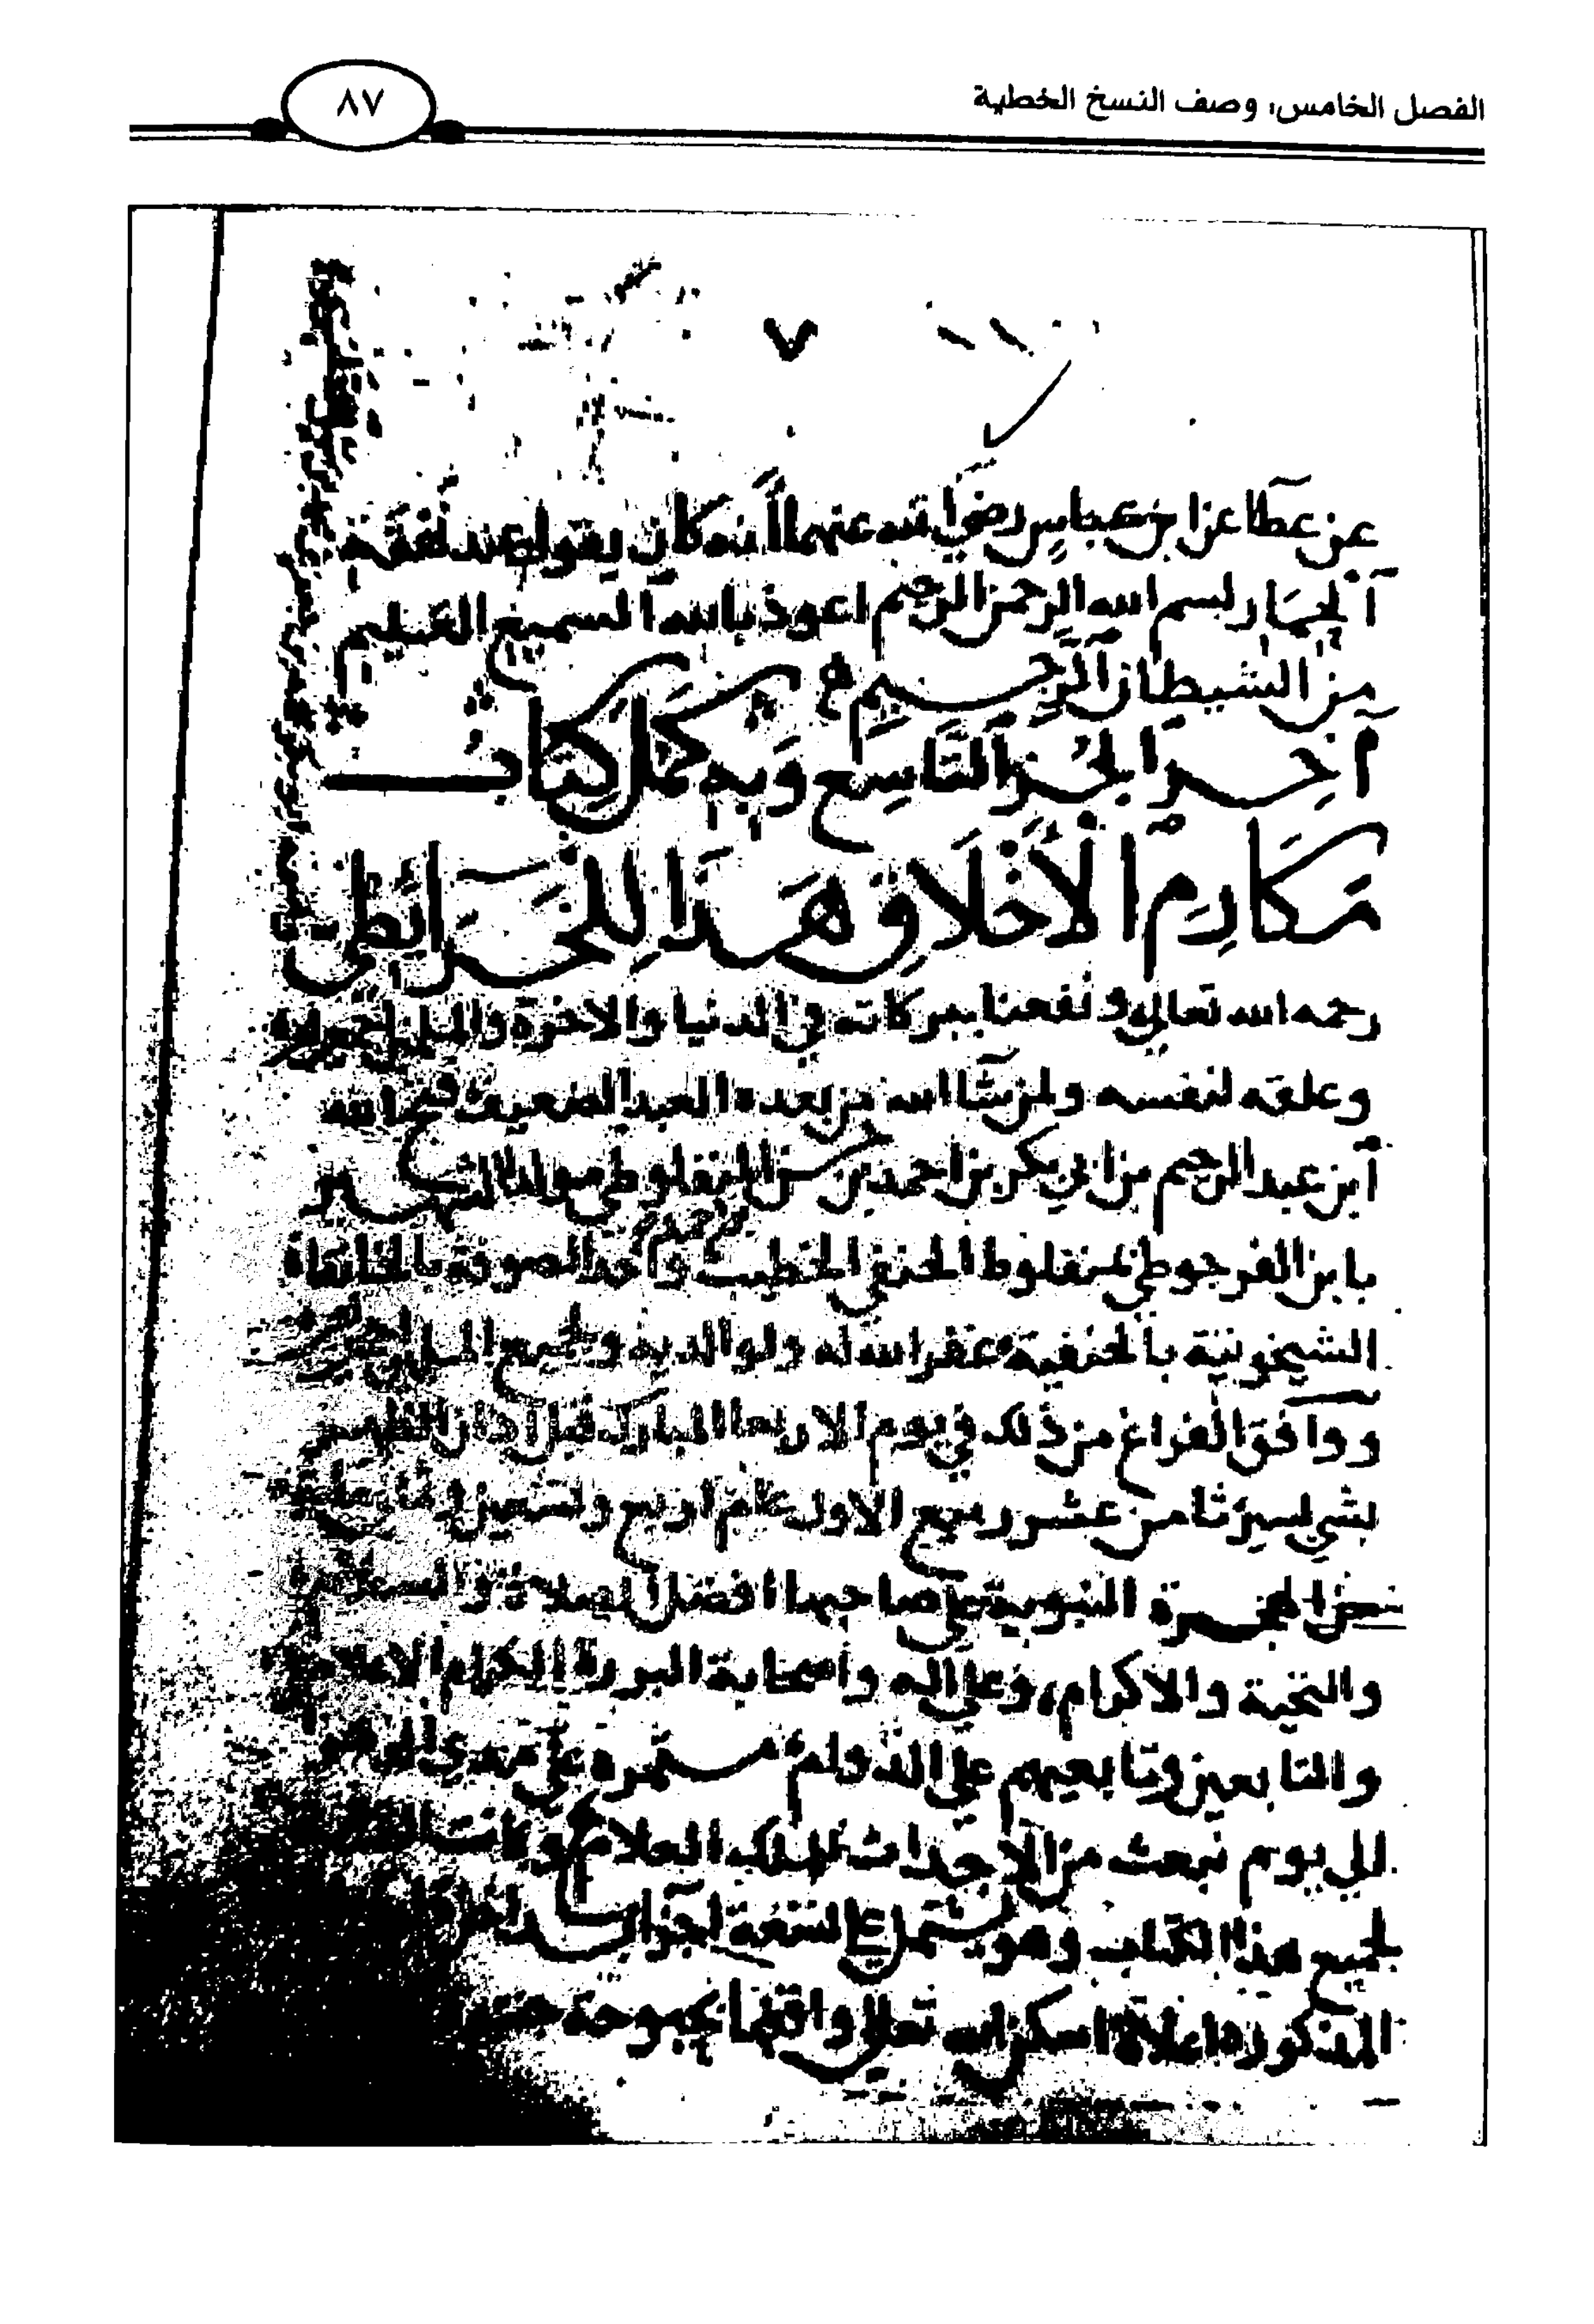 الفصل الخامس: وصف النسخ الخطية
٨٧
عن عطا عن ابن عباس رضي الله عنهما أنه كان يقول عند
الحمار بسم الله الرحمن الرحيم اعوذ بالله السميع العليم
من الشيطان الرجيم
آخر الجز التاسع وبه كمل كتاب
مكارم الأخلاق هذا للخرائطي
رحمه الله تعالى ونفعنا ببركاته في الدنيا والاخرة والمسلمين
وعلقه لنفسه ولمن شا الله من بعده العبد الضعيف فتح الله
ابن عبد الرحيم بن ابي بكر بن احمد بن حسن المنفلوطي مولدا الشهير
بابن الفرجوطي بمنفلوط الحنفي الخطيب واحد الصوفة بالخانقاة
الشيخونية بالحنفية غفر الله له ولوالديه ولجميع المسلمين
ووافق الفراغ من ذلك في يوم الاربعا المبارك قبل اذان الظهر
بشي يسير ثامن عشر ربيع الاول عام اربع وتسعين
من الهجرة النبوية على صاحبها افضل الصلاة والسلام
والتحية والاكرام وعلى اله واصحابه البررة الكرام الاعلام
والتابعين وتابعيهم على الدوام مستمرة على
الى يوم نبعث من الاجداث للملك العلام وكانت
لجميع هذا الكتاب وهو يشتمل على تسعة اجزا
المذكورة اعلاه اسكن الله تعالى بحبوحة